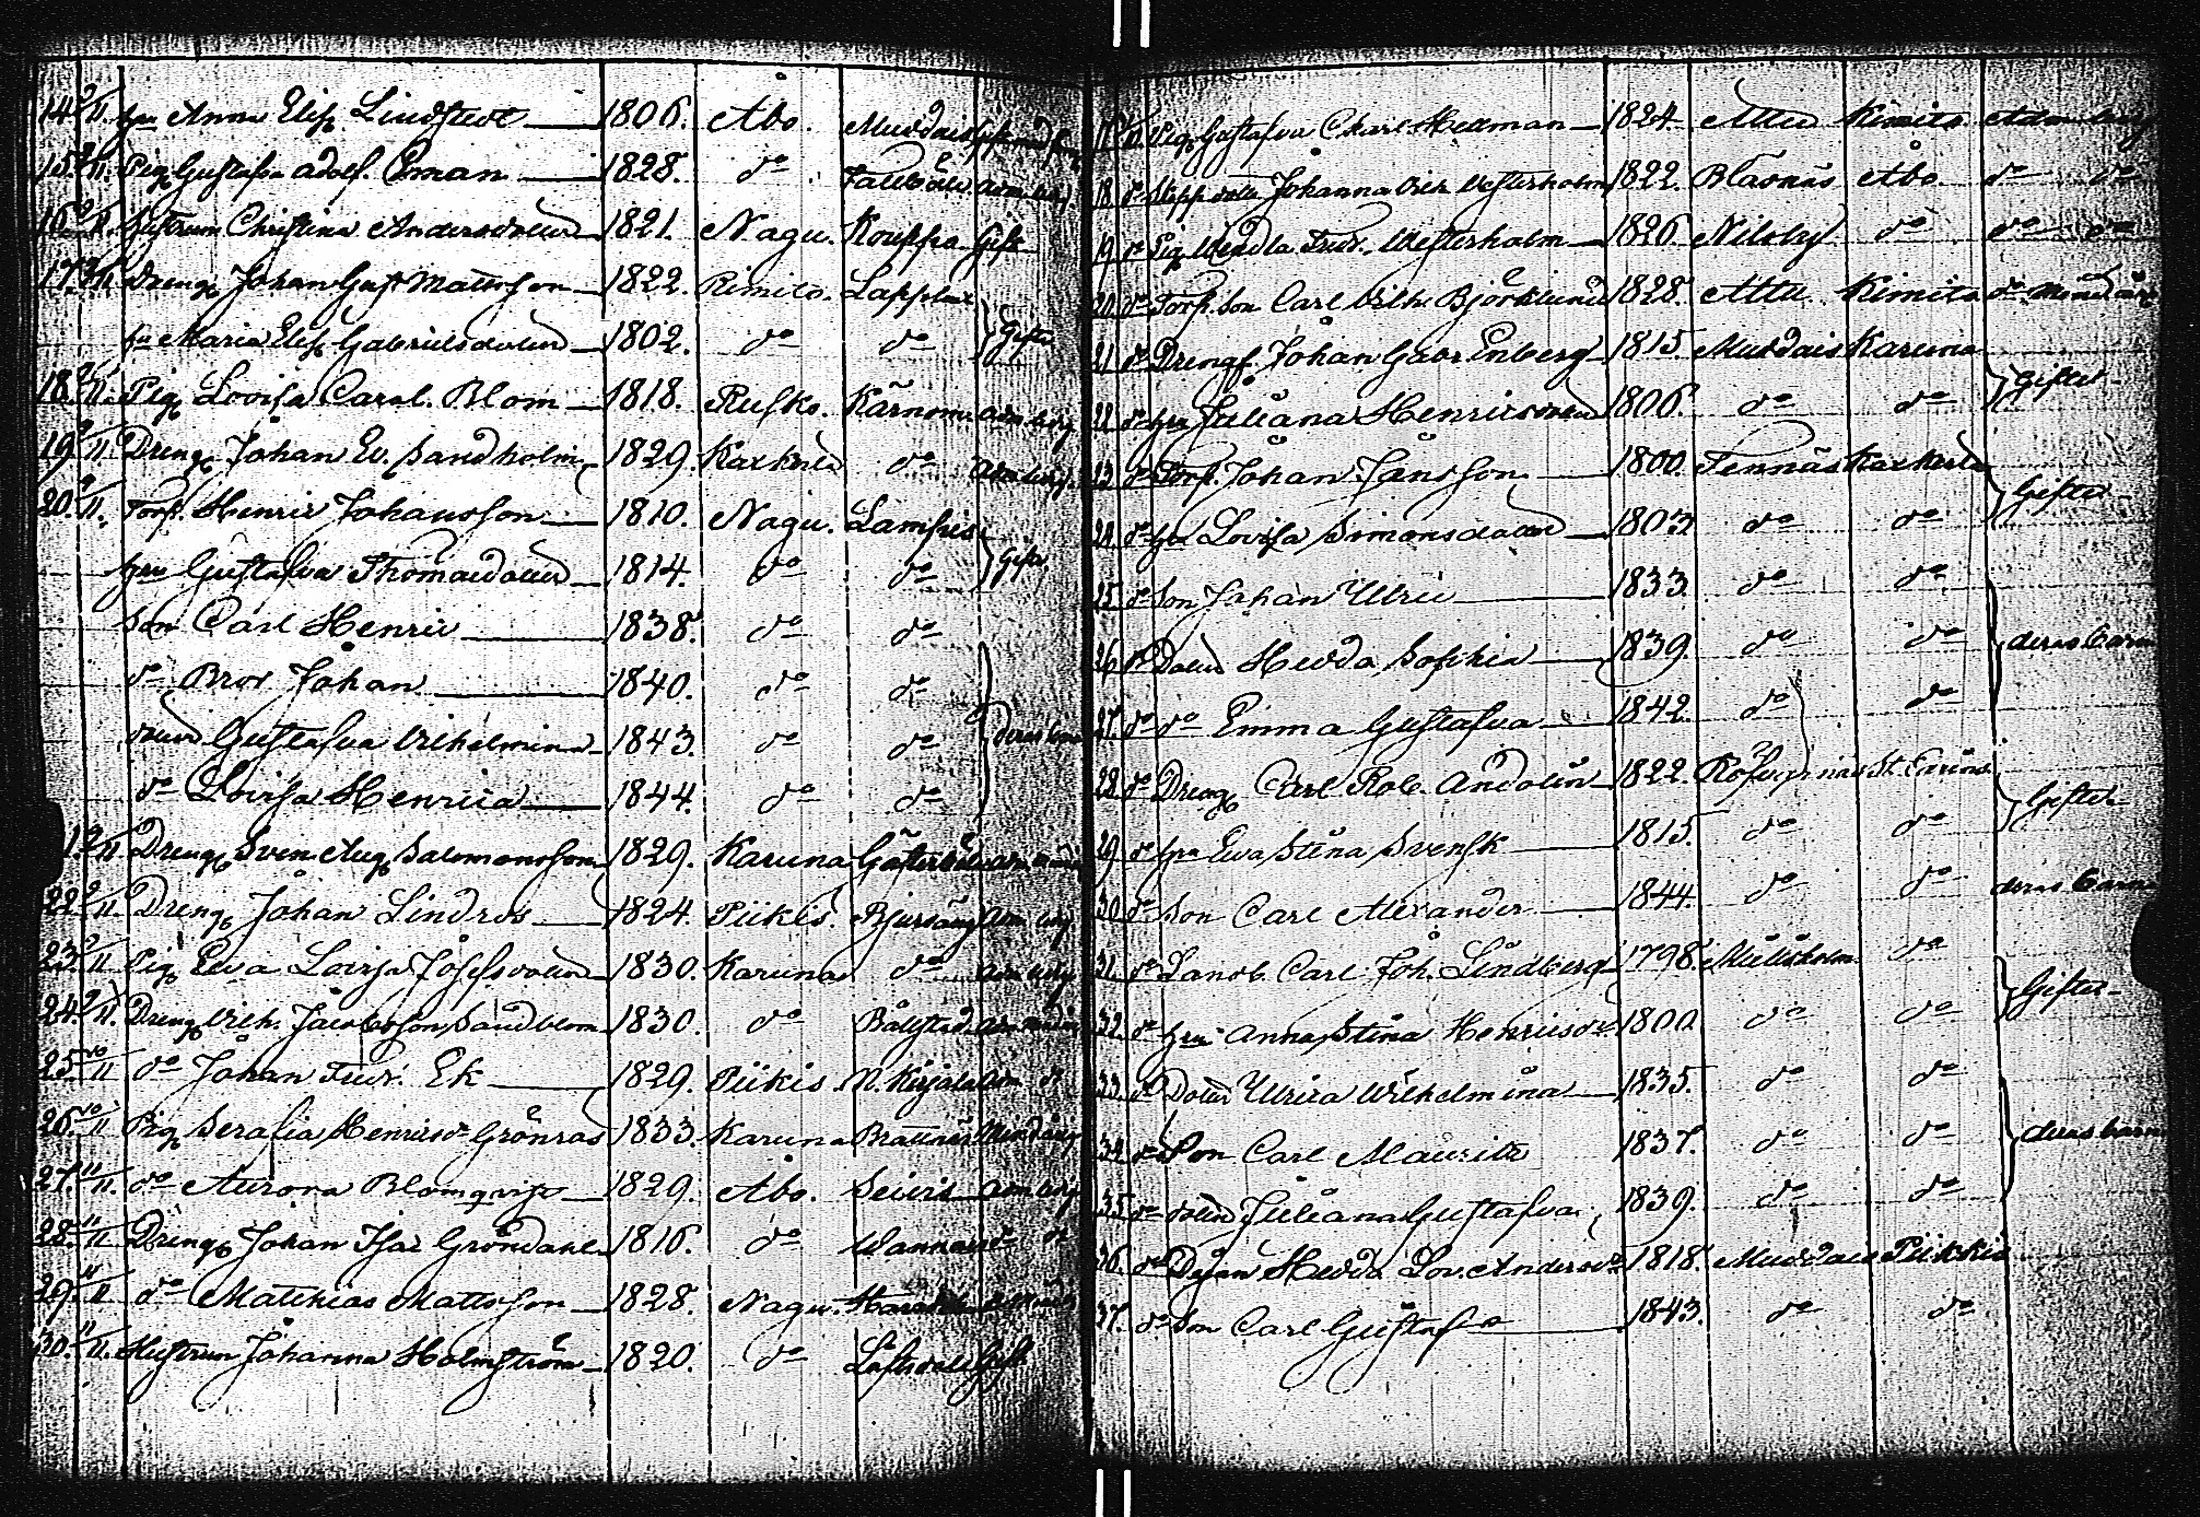 14. 9/11. hru Anna Elis. Lindstedt 1806. Åbo. Muddais
15. 9/11. Pig. Gustafva Adolf. Öman 1828. do
16. 9/11. Hustrun Christina Andersdotter 1821. Nagu. Kouppa Gift
17. 9/11 Dreng Johan Gust. Mattsson 1822. Kimito. Lappdal
hu Maria Elis. Gabrielsdotter 1802. do do Gifta
18. 9/11. Pig. Lovisa Carol. Blom 1818. Rusko. Kärnoma adm. berg
19. 9/11. Dreng Johan Ed. Sandholm 1829. Karkuld do adm. berg.
20. 9/11. Torp. Henric Johansson 1810. Nagu. Lampis
hru Gustafva Thomasdotter 1814. do do Gifta
Son Carl Henric 1838. do do
do Bror Johan 1840. do do
dotter Gustafva Vilhelmina 1843. do do deras barn
do Lovisa Henrica 1844. do do
1. 9/11 Dreng Sven Aug. Salomonsson 1829. Karuna
22. 9/11. Dreng Johan Lindros 1824. Piikis. Bjursäng adm. berg
23. 9/11 Pig. Eva Lovisa Josefsdotter 1830. Karuna do adm. berg
24. 9/11. Dreng Vilh. Jacobsson Sandblom 1830. do Båtstad
25. 10/11 do Johan Fredr. Ek 1829. Piikis. N. Kirjala adm. do
26. 10/11 Pig. Serafia Henricsdr Grönros 1833. Karuna
27. 11/11. do Aurora Blomqvist 1829. Åbo. adm. berg
28. 11/11 Dreng Johan Isac Gröndahl 1816. do do
29. 11/11 do Matthias Mattsson 1828. Nagu.
30. 11/11. Hustrun Johanna Holmström 1820. do Löfsdal Gift
17. 11/11. Pig. Gustafva Charl. Hellman 1824. Attu Kimito Adm. berg
18. do Stepp dotter Johanna Vilh. Westerholm 1822. Blåsnäs Åbo do do
19. do Pig. Wendla Fredr. Westerholm 1826. Nilsby do do do
20. do Torp. Son Carl Vilh. Björklund 1828. Attu Kimito do
21. do Dreng Johan Gabr. Enberg 1815. Muddais Karuna
22. do hru Juliana Henricsdotter 1806. do do Gifter
23. do Torp. Johan Jansson 1800. Tennäs Karkuld
24. do hru Lovisa Simonsdotter 1803. do do Gifter
25. do Son Johan Ulric 1833. do do
26. do Dotter Hedda Sophia 1839. do do deras barn
27. do do Emma Gustafva 1842. do do
28. do Dreng Carl Rob. Andolin 1822. St. Carins
29. do hru Eva Stina Svensk 1815. do do Gifter
30. do Son Carl Alexander 1844. do do deras barn
31. do Landb. Carl Joh. Lindberg 1798. do
32. do hru Anna Stina Henricsdr 1800. do do Gifter
33. do Dotter Ulrica Wilhelmina 1835. do do
34. do Son Carl Mauritz 1837. do do deras barn
35. do dotter Juliana Gustafva 1839. do do
36. do Dejan Hedda Lov. Andersdr 1818. Muddais Piikkis
37. do Son Carl Gustaf 1843. do do